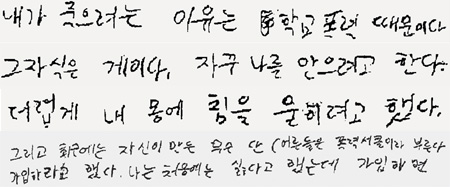 내가 죽으려는 이유는 학교폭력 때문이다
그자식은 게이다, 자꾸 나를 안으려고 한다.
더럽게 내 몸에 힘을 하려고 했다.
그리고 최근에는 자신이 만든 무슨 단 (어른들은 폭력서클이라 부른다
가입하라고 했다. 나는 처음에는 싫다고 했는데 가입하면